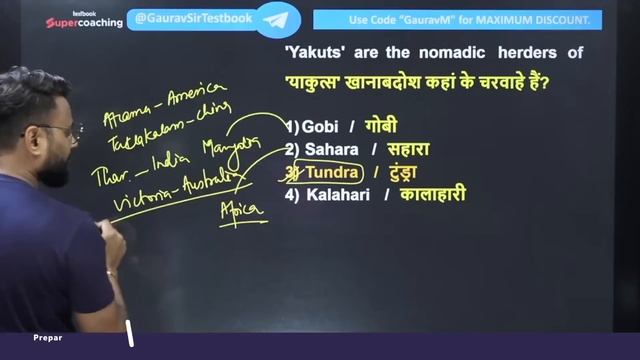 testbook
Supercoaching
@GauravSirTestbook
Use Code "GauravM" for MAXIMUM DISCOUNT.
'Yakuts' are the nomadic herders of
'याकुत्स' खानाबदोश कहां के चरवाहे हैं?
1) Gobi / गोबी
2) Sahara / सहारा
3) Tundra / टुंड्रा
4) Kalahari / कालाहारी
Atacama - America
Taklakalam - China
Thar - India
Mangolia
Victoria - Australia
Africa
Prepar